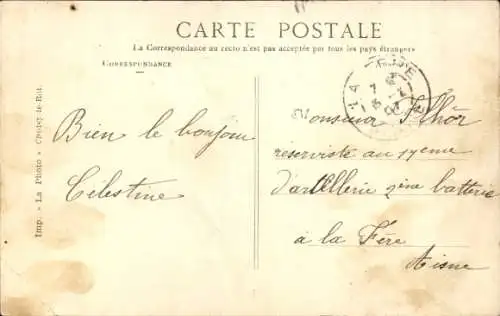 CARTE POSTALE
La Correspondance au recto n'est pas acceptée par tous les pays étrangers
CORRESPONDANCE
Bien le bonjour
Célestine
Monsieur
réserviste au 17eme
d'artillerie 2ème batterie
à la Fère
Aisne
Imp. - La Photo - Choisy-le-Roi.